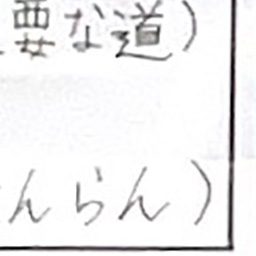 要な道)
んらん)